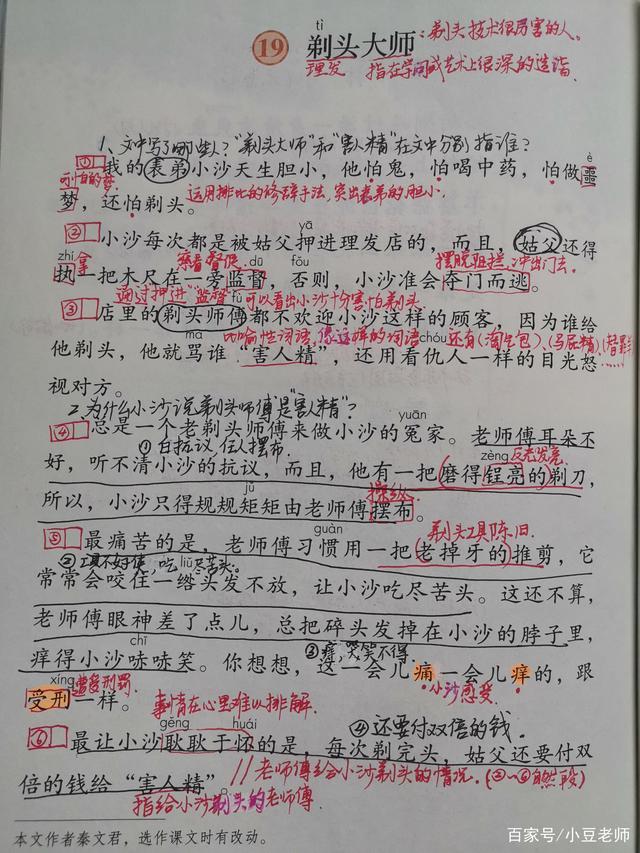 tì
19 剃头大师:剃头技术很厉害的人。
理发 指在学问或艺术上很深的造诣
1、文中写了哪些人?“剃头大师”和“害人精”在文中分别指谁?
① 我的表弟小沙天生胆小,他怕鬼,怕喝中药,怕做噩
è
可怕的梦 运用排比的修辞手法,突出表弟的胆小。
梦,还怕剃头。
yā
② 小沙每次都是被姑父押进理发店的,而且,姑父还得
zhí 拿 察看督促 dū fǒu 摆脱阻拦,冲出门去。
执一把木尺在一旁监督,否则,小沙准会夺门而逃。
通过“押进”“监督”可以看出小沙十分害怕剃头
fù
③ 店里的剃头师傅都不欢迎小沙这样的顾客,因为谁给
mà 比喻性词语,像这样的词语还有(淘气包)、(马屁精)、
chóu
他剃头,他就骂谁“害人精”,还用看仇人一样的目光怒
视对方。
2、为什么小沙说剃头师傅是“害人精”?
yuān
④ 总是一个老剃头师傅来做小沙的冤家。老师傅耳朵不
①白抗议,任人摆布. zèng 反光发亮
好,听不清小沙的抗议,而且,他有一把磨得锃亮的剃刀,
jǔ 操纵
所以,小沙只得规规矩矩由老师傅摆布。
guàn 剃头工具陈旧.
⑤ 最痛苦的是,老师傅习惯用一把老掉牙的推剪,它
②工具不好使,吃尽苦头. liǔ
常常会咬住一绺头发不放,让小沙吃尽苦头。这还不算,
老师傅眼神差了点儿,总把碎头发掉在小沙的脖子里,
chī ③痒,哭笑不得
痒得小沙哧哧笑。你想想,这一会儿痛一会儿痒的,跟
xíng 遭受刑罚 小沙感受
受刑一样。 事情在心里难以排解.
gěng huái ④还要付双倍的钱.
⑥ 最让小沙耿耿于怀的是,每次剃完头,姑父还要付双
倍的钱给“害人精”。 //老师傅给小沙剃头的情况。(②~⑥自然段)
指给小沙剃头的老师傅
本文作者秦文君,选作课文时有改动。
百家号/小豆老师